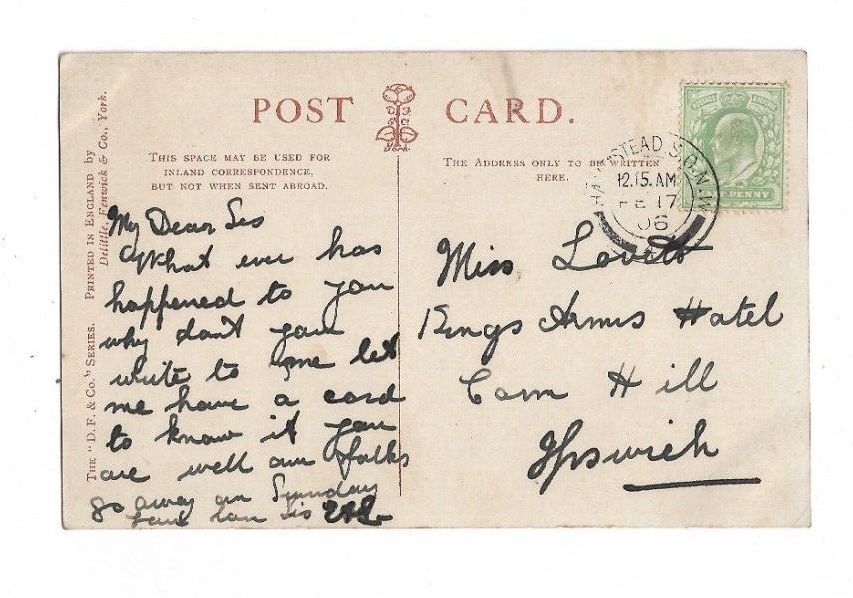 POST CARD.
THIS SPACE MAY BE USED FOR
INLAND CORRESPONDENCE,
BUT NOT WHEN SENT ABROAD.
THE ADDRESS ONLY TO BE WRITTEN
HERE.
THE "D. F. & CO." SERIES. PRINTED IN ENGLAND by
Delittle, Fenwick & Co., York.
York
STEAD S.O. N.W
12.15. AM
FE 17
06
PENNY
My Dear Ses
What ever has
happened to you
why don't you
write to me let
me have a card
to know if you
are well our folks
go away on Sunday
Miss Lovett
Kings Arms Hotel
Corn Hill
Ipswich